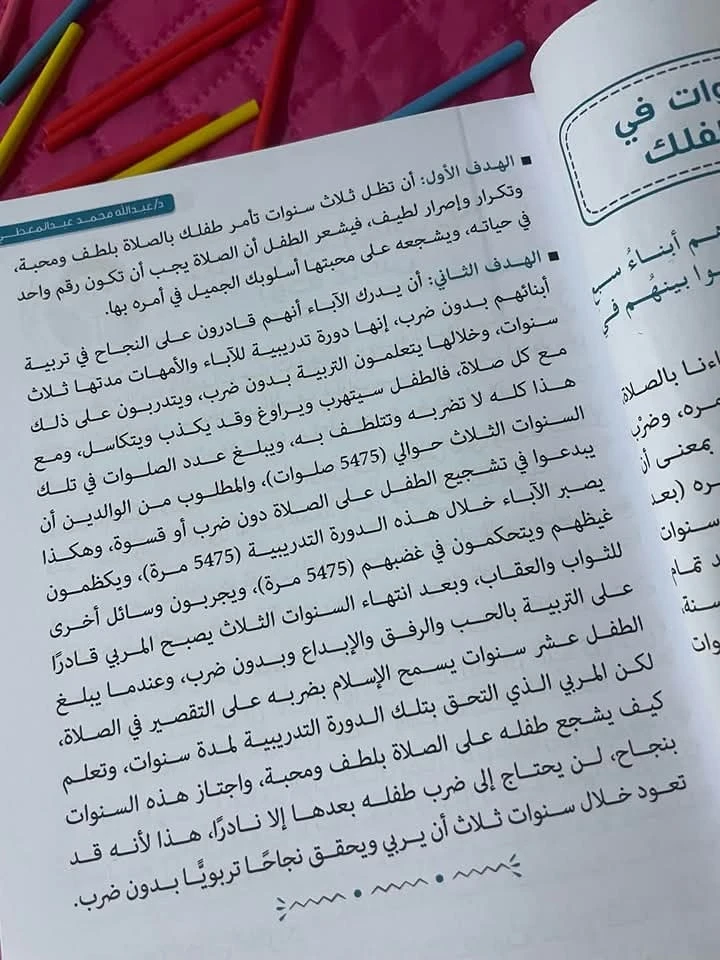 د/عبدالله محمد عبدالمعطي
الهدف الأول: أن تظل ثلاث سنوات تأمر طفلك بالصلاة بلطف ومحبة،
وتكرار وإصرار لطيف، فيشعر الطفل أن الصلاة يجب أن تكون رقم واحد
في حياته، ويشجعه على محبتها أسلوبك الجميل في أمره بها.
الهدف الثاني: أن يدرك الآباء أنهم قادرون على النجاح في تربية
أبنائهم بدون ضرب، إنها دورة تدريبية للآباء والأمهات مدتها ثلاث
سنوات، وخلالها يتعلمون التربية بدون ضرب، ويتدربون على ذلك
مع كل صلاة، فالطفل سيتهرب ويراوغ وقد يكذب ويتكاسل، ومع
هذا كله لا تضربه وتتلطف به، ويبلغ عدد الصلوات في تلك
السنوات الثلاث حوالي (5475 صلوات)، والمطلوب من الوالدين أن
يبدعوا في تشجيع الطفل على الصلاة دون ضرب أو قسوة، وهكذا
يصبر الآباء خلال هذه الدورة التدريبية (5475 مرة)، ويكظمون
غيظهم ويتحكمون في غضبهم (5475 مرة)، ويجربون وسائل أخرى
للثواب والعقاب، وبعد انتهاء السنوات الثلاث يصبح المربي قادرًا
على التربية بالحب والرفق والإبداع وبدون ضرب، وعندما يبلغ
الطفل عشر سنوات يسمح الإسلام بضربه على التقصير في الصلاة،
لكن المربي الذي التحق بتلك الدورة التدريبية لمدة سنوات، وتعلم
كيف يشجع طفله على الصلاة بلطف ومحبة، واجتاز هذه السنوات
بنجاح، لن يحتاج إلى ضرب طفله بعدها إلا نادرًا، هذا لأنه قد
تعود خلال سنوات ثلاث أن يربي ويحقق نجاحًا تربويًّا بدون ضرب.
في
أبناءُ
بينهُم
بالصلاة
بمعنى أن
(بعد
سنوات
تمام
سنة،